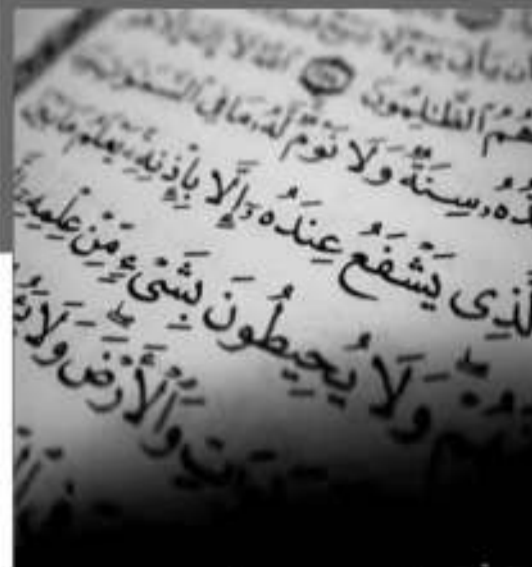 هُمُ ٱلظَّٰلِمُونَ ٱللَّهُ لَآ إِلَٰهَ إِلَّا
سِنَةٌ وَلَا نَوْمٌ لَّهُۥ مَا فِى ٱلسَّمَٰوَٰتِ
لَّذِى يَشْفَعُ عِندَهُۥٓ إِلَّا بِإِذْنِهِۦ يَعْلَمُ مَا بَيْنَ
وَلَا يُحِيطُونَ بِشَىْءٍ مِّنْ عِلْمِهِۦٓ
وَٱلْأَرْضَ وَلَا